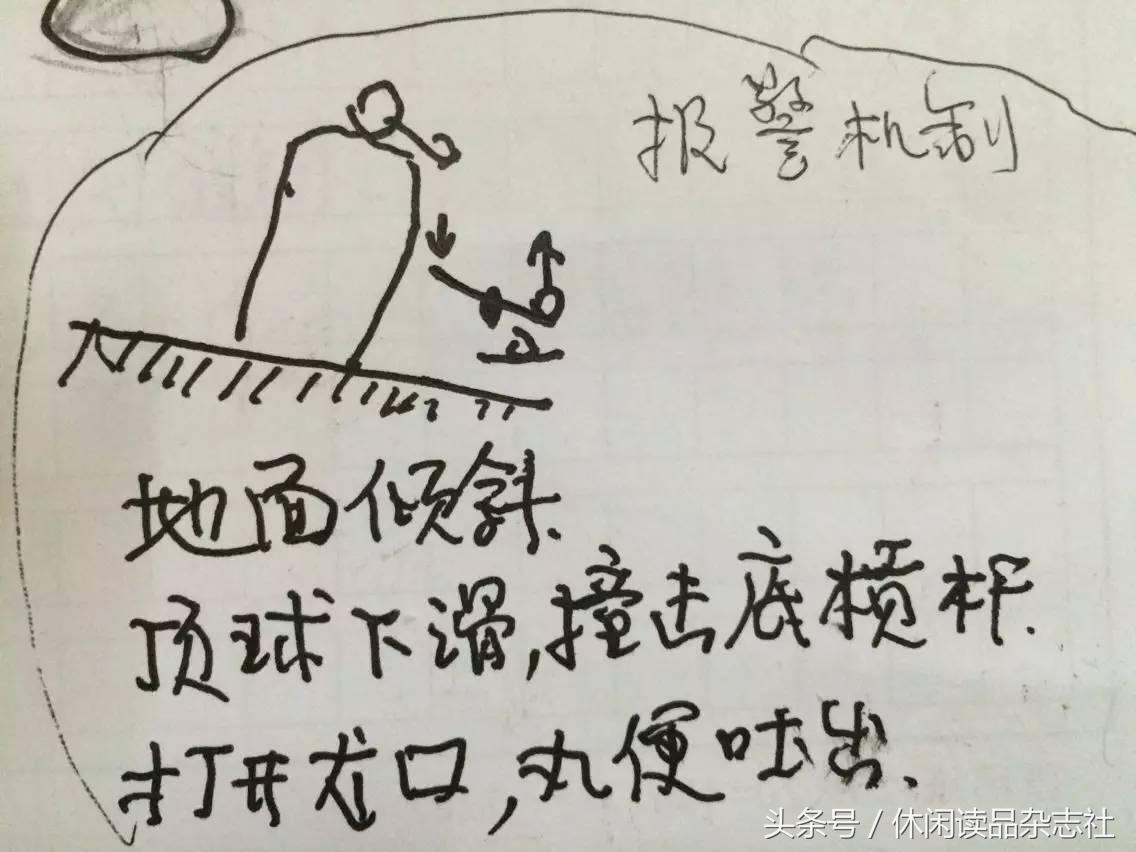 报警机制
地面倾斜.
顶球下滑,撞击底横杆.
打开龙口,丸便吐出.
头条号 / 休闲读品杂志社